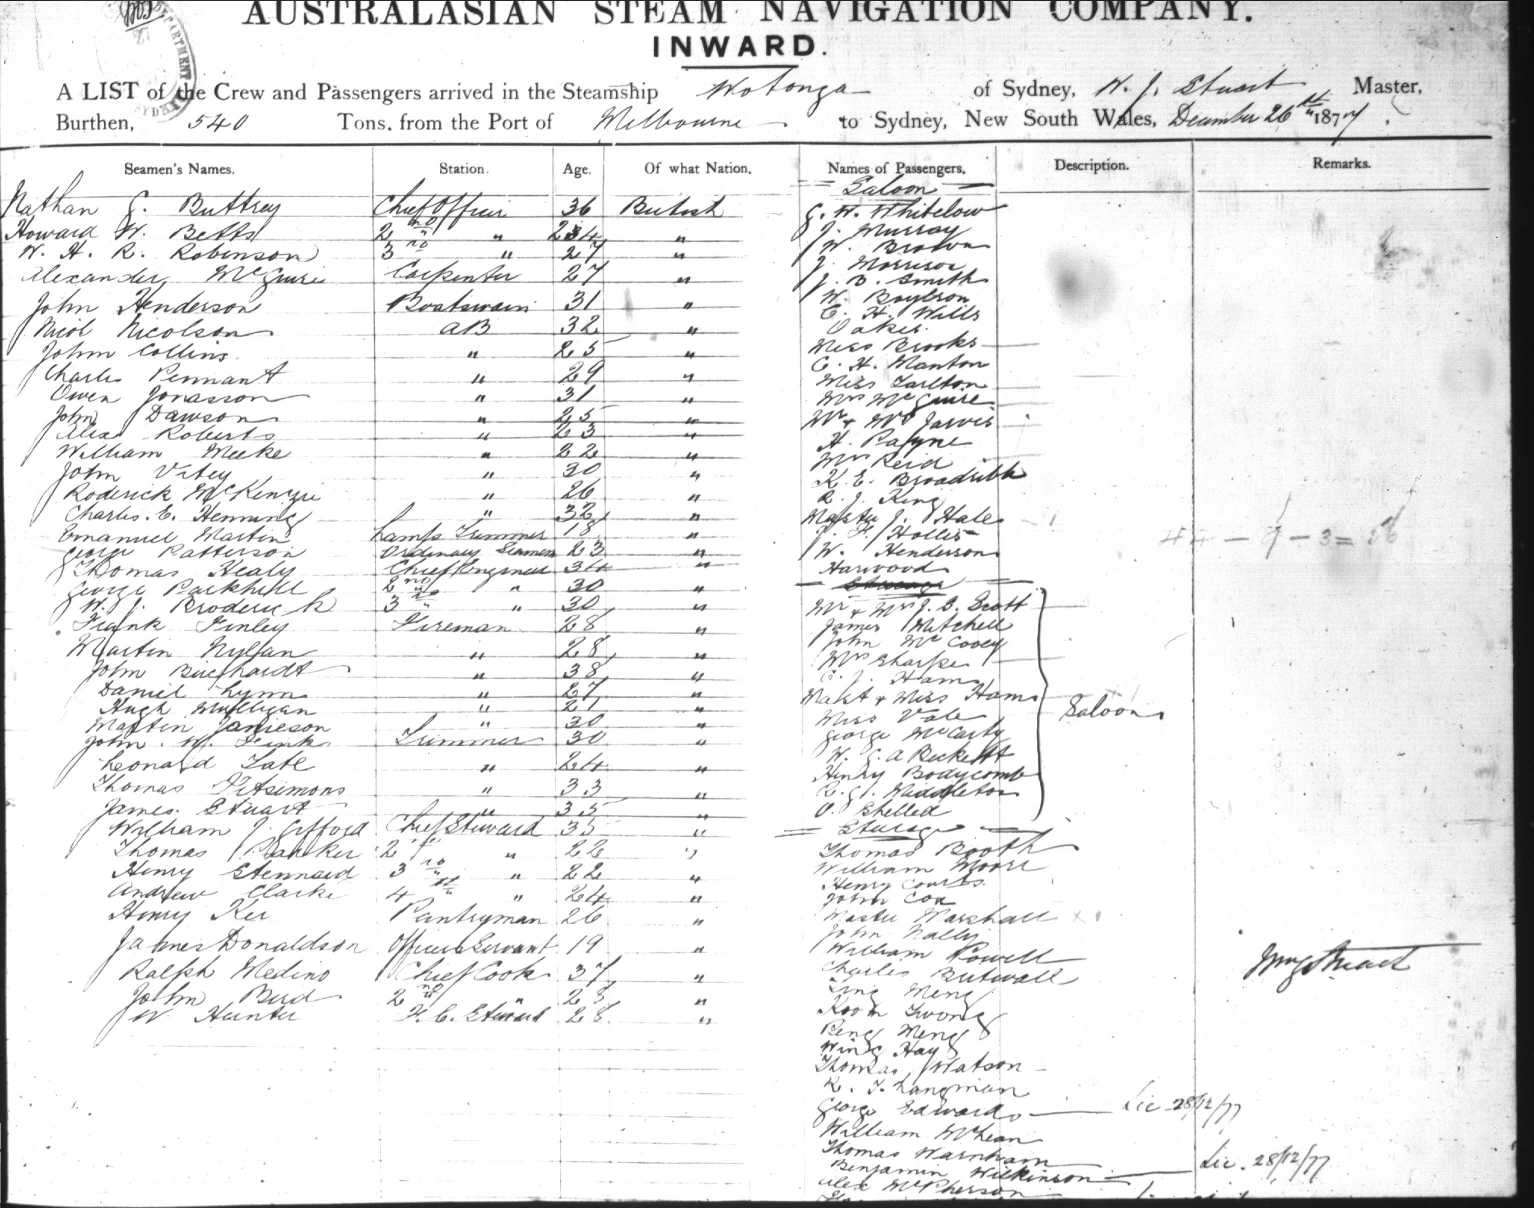 AUSTRALASIAN STEAM NAVIGATION COMPANY.
INWARD.
A LIST of the Crew and Passengers arrived in the Steamship Wotonga of Sydney, W. J. Stuart Master,
Burthen, 540 Tons, from the Port of Melbourne to Sydney, New South Wales, December 26th 1877.
Seamen's Names. Station. Age. Of what Nation.
Nathan G. Buttrey Chief Officer 36 British
Howard W. Betts 2nd " "
W. H. R. Robinson 3rd " 27 "
Alexander McGuire Carpenter 27 "
John Henderson Boatswain 31 "
Nicol Nicolson AB 32 "
John Collins " 25 "
Charles Pennant " 29 "
Owen Jonasson " 31 "
John Dawson " 25 "
Alex Roberts " 23 "
William Meeke " 22 "
John " 30 "
Roderick McKenzie " 26 "
Charles. E. Henning " 32 "
Emanuel Martin Lamp Trimmer 18 "
George Patterson Ordinary Seaman 23 "
Thomas Healy Chief Engineer 34 "
George Parkhill 2nd " 30 "
W. J. Broderick 3rd " 30 "
Frank Finley Fireman 28 "
Martin " 28 "
John " 38 "
Daniel Lynn " 27 "
Hugh Mulligan " 21 "
Martin Jamieson " 30 "
John. W. Trimmer 30 "
Leonard Tate " 24 "
Thomas Fitsimons " 33 "
James Stuart " 35 "
William J Gifford Chief Steward 35 "
Thomas Barker 2nd " 22 "
Henry Stennard 3rd " 22 "
Andrew Clarke 4th " 24 "
Henry Ker Pantryman 26 "
James Donaldson Officers Servant 19 "
Ralph Medino Chief Cook 37 "
John Bird 2nd " 28 "
W Hunter F. C. Steward 28 "
Names of Passengers. Description. Remarks.
Saloon
G. W. Whitelow
J. Murray
W. Brown
J. Morrison
J. B. Smith
W. Boylson
E. H. Wills
Oakes
Miss Brooks
C. H. Manton
Miss Tarlton
Mrs McGuire
Mr & Mrs Jarvis
H. Payne
Mrs Reid
K. E. Broadribb
R. J. King
Master J. Hales
J. F. Hollis
W. Henderson
Harwood
44 - 9 - 3 = 56
Steerage
Mr & Mrs J. B. Scott
James Mitchell
John McCovey
Mrs Sharpe
C. J. Hams
Mast & Miss Hams
Miss Vale
George McCarty
W. G. A Beckett
Henry Bodycomb
C. J. Middleton
O. Shelled
Saloon
Steerage
Thomas Booth
William Moore
Henry Courts
John Cox
Master Marshall
John Nally
William Powell
Charles Butwall
Ling Meng
Koom Twong
Peng Meng
Wing Hay
Thomas Watson
K. T. Langman
George Edwards Lic 28/12/77
William McLean
Thomas Warnham
Benjamin Wilkinson Lic. 28/12/77
Alex McPherson
Wm J Stuart